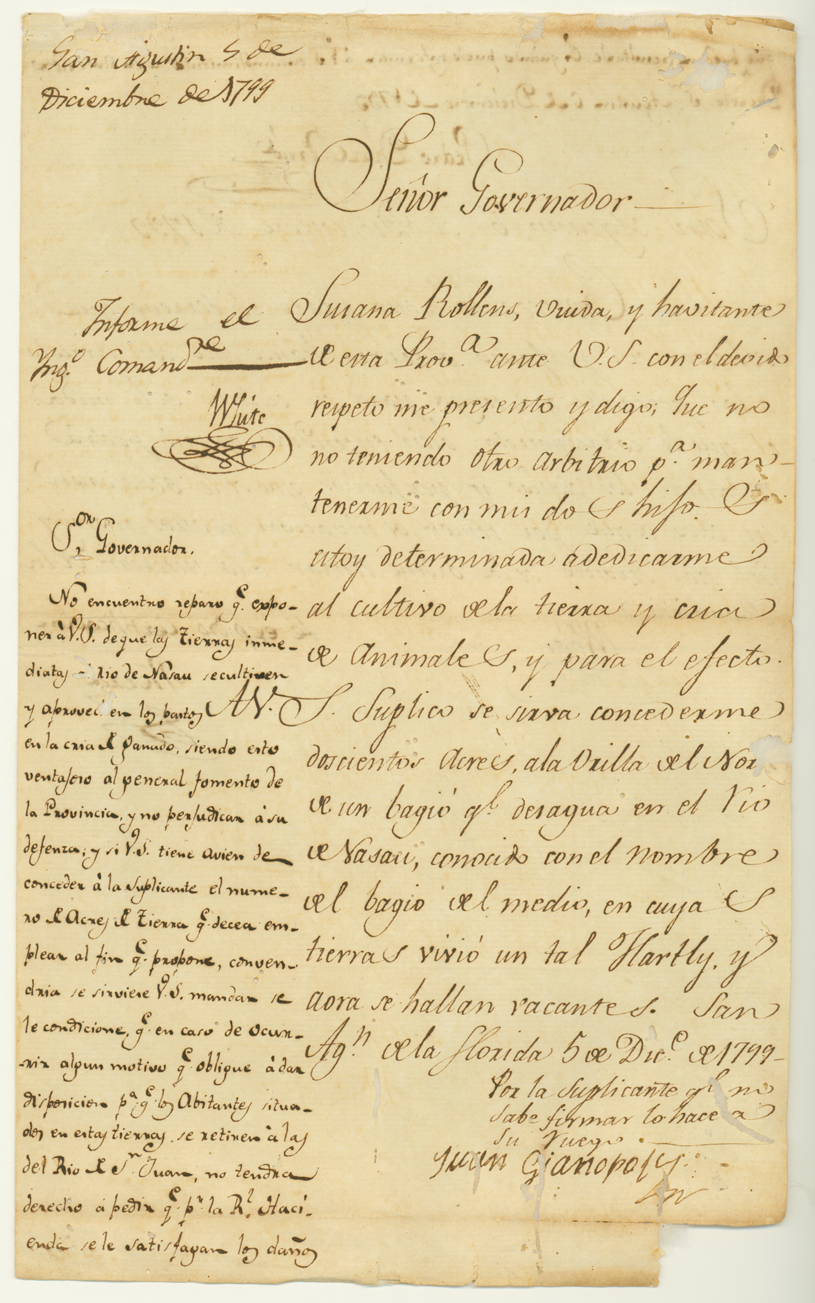 San Agustin 5 de
Diciembre de 1799
Señor Governador
Informe el
Yng.º Comand.te
White
Susana Rollens, viuda, y havitante
de esta Prov.ª ante V.S. con el devido
respeto me presento y digo; Que no
no teniendo otro arbitrio p.ª man-
tenerme con mis dos hijos. 
estoy determinada a dedicarme
al cultivo de la tierra y cria
de animales, y para el efecto.
A V.S. Suplico se sirva concederme
doscientos Acrès, a la Orilla del Nor
de un bagió q.e desagua en el rio
de Nasau, conocido con el nombre
del bagio del medio, en cuyas
tierras vivió un tal Hartly, y
aora se hallan vacantes. San
Ag.n de la florida 5 de Dic.e de 1799-
Por la suplicante q.e no
sabe firmar lo hace a
su ruego
Juan Gianopoly
S.or Governador.
No encuentro reparo q.e expo-
ner à V.S. de que las tierras inme-
diatas rio de Nasau se cultiven
y aprovec en los pastos
en la cria de ganado, siendo esto
ventajoso al general fomento de
la Provincia, y no perjudican à su
defenza; y si V.S. tiene avien de
conceder à la suplicante el nume-
ro de Acres de tierra q.e decea em-
plear al fin q.e propone, conven-
dria se sirviere V.S. mandar se
le condicione, q.e en caso de ocur-
rir algun motivo q.e obligue à dar
disposicion p.ª q.e los Abitantes situa-
dos en estas tierras se retiren à las
del Rio de S.n Juan, no tendra
derecho a pedir q.e p.r la R.l Haci-
enda se le satisfagan los daños